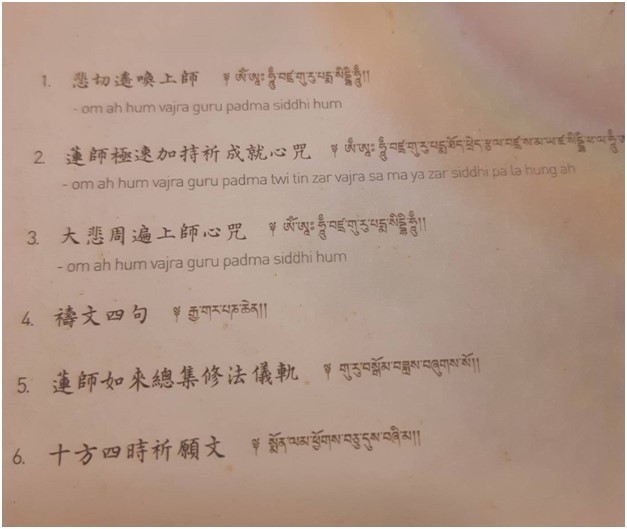 1. 悲切遙喚上師 ༈ ཨོཾ་ཨཱཿ་ཧཱུྃ་བཛྲ་གུ་རུ་པདྨ་སིདྡྷི་ཧཱུྃ༎
- om ah hum vajra guru padma siddhi hum
2. 蓮師極速加持祈成就心咒 ༈ ཨོཾ་ཨཱཿ་ཧཱུྃ་བཛྲ་གུ་རུ་པདྨ་ཐོད་ཕྲེང་རྩལ་བཛྲ་ས་མ་ཡ་ཛ་སིདྡྷི་ཕ་ལ་ཧཱུྃ
- om ah hum vajra guru padma twi tin zar vajra sa ma ya zar siddhi pa la hung ah
3. 大悲周遍上師心咒 ༈ ཨོཾ་ཨཱཿ་ཧཱུྃ་བཛྲ་གུ་རུ་པདྨ་སིདྡྷི་ཧཱུྃ༎
- om ah hum vajra guru padma siddhi hum
4. 禱文四句 ༈ རྒྱ་གར་པཎ་ཆེན༎
5. 蓮師如來總集修法儀軌 ༈ གུ་རུ་བསྒོམ་བཟླས་བཞུགས་སོ༎
6. 十方四時祈願文 ༈ སྨོན་ལམ་ཕྱོགས་བཅུ་དུས་བཞི་མ༎